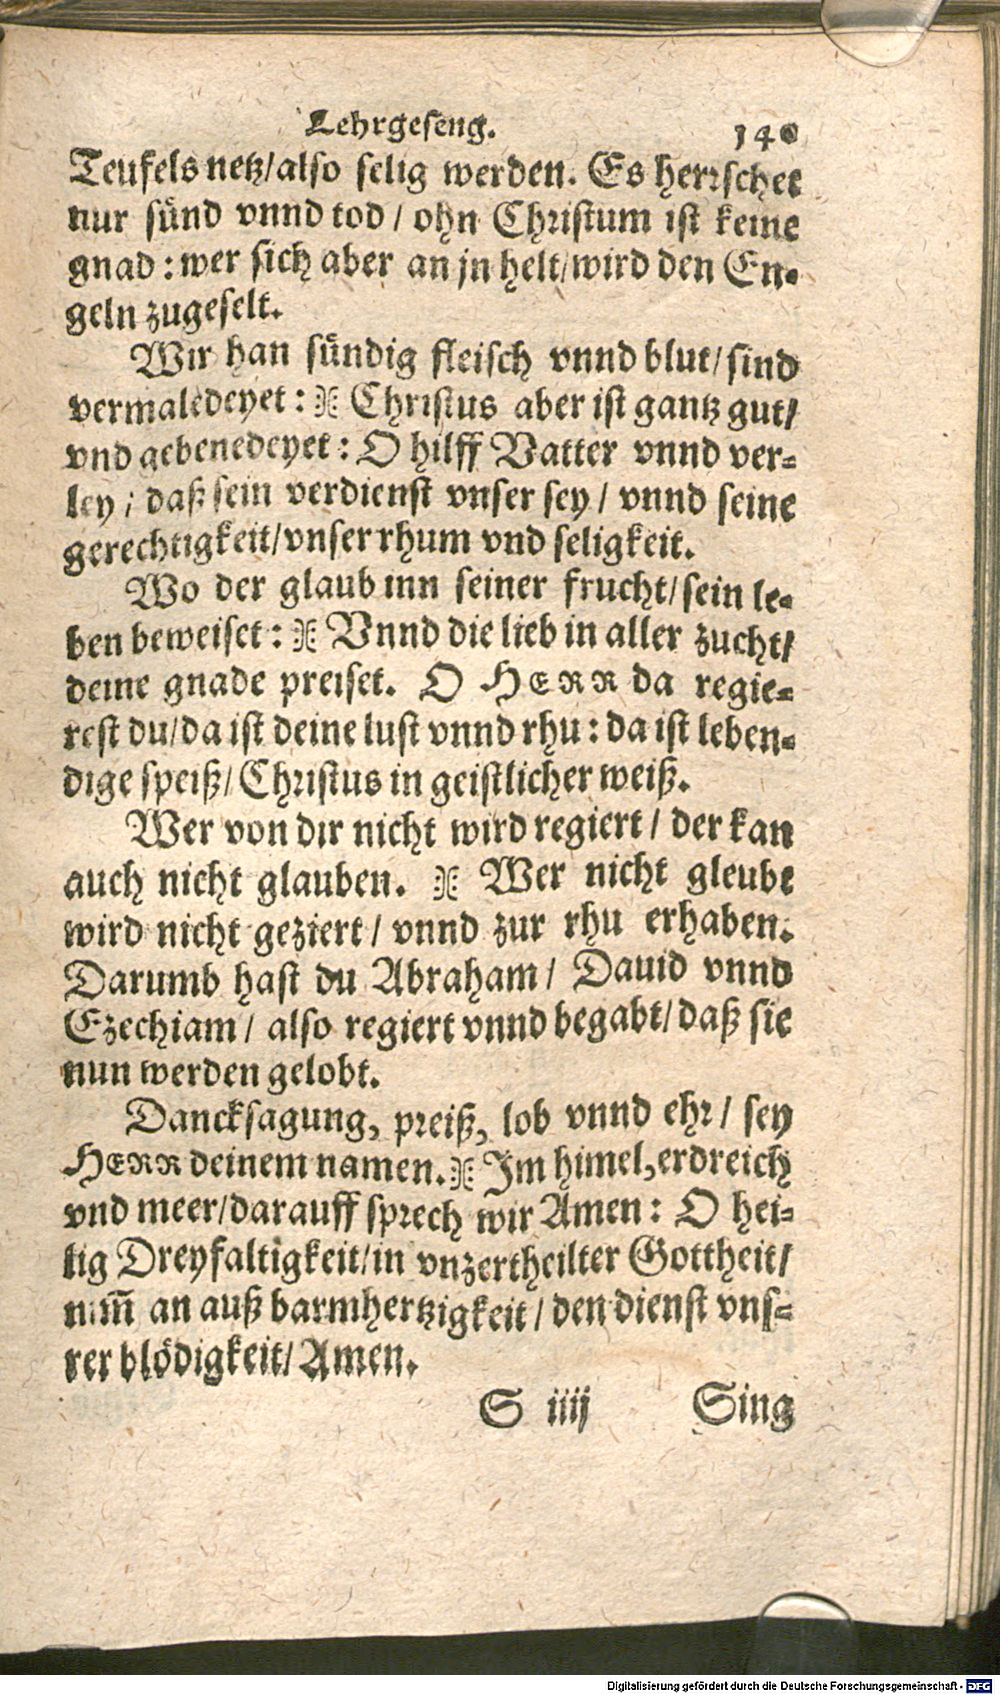 Lehrgeseng. 140
Teufels netz/also selig werden. Es herrschet
nur sünd vnnd tod/ ohn Christum ist keine
gnad: wer sich aber an jn helt/wird den En-
geln zugeselt.
Wir han sündig fleisch vnnd blut/sind
vermaledeyet: Christus aber ist gantz gut/
vnd gebenedeyet: O hilff Vatter vnnd ver-
ley; daß sein verdienst vnser sey/ vnnd seine
gerechtigkeit/vnser rhum vnd seligkeit.
Wo der glaub inn seiner frucht/sein le-
ben beweiset: Vnnd die lieb in aller zucht/
deine gnade preiset. O HERR da regie-
rest du/da ist deine lust vnnd rhu: da ist leben-
dige speiß/Christus in geistlicher weiß.
Wer von dir nicht wird regiert/ der kan
auch nicht glauben. Wer nicht gleubt
wird nicht geziert/ vnnd zur rhu erhaben.
Darumb hast du Abraham/ Dauid vnnd
Ezechiam/ also regiert vnnd begabt/daß sie
nun werden gelobt.
Dancksagung, preiß, lob vnnd ehr/ sey
HERR deinem namen. Im himel, erdreich
vnd meer/darauff sprech wir Amen: O hei-
lig Dreyfaltigkeit/in vnzertheilter Gottheit/
nim̅ an auß barmhertzigkeit/den dienst vns-
rer blödigkeit/Amen.
S iiij Sing
Digitalisierung gefördert durch die Deutsche Forschungsgemeinschaft - DFG